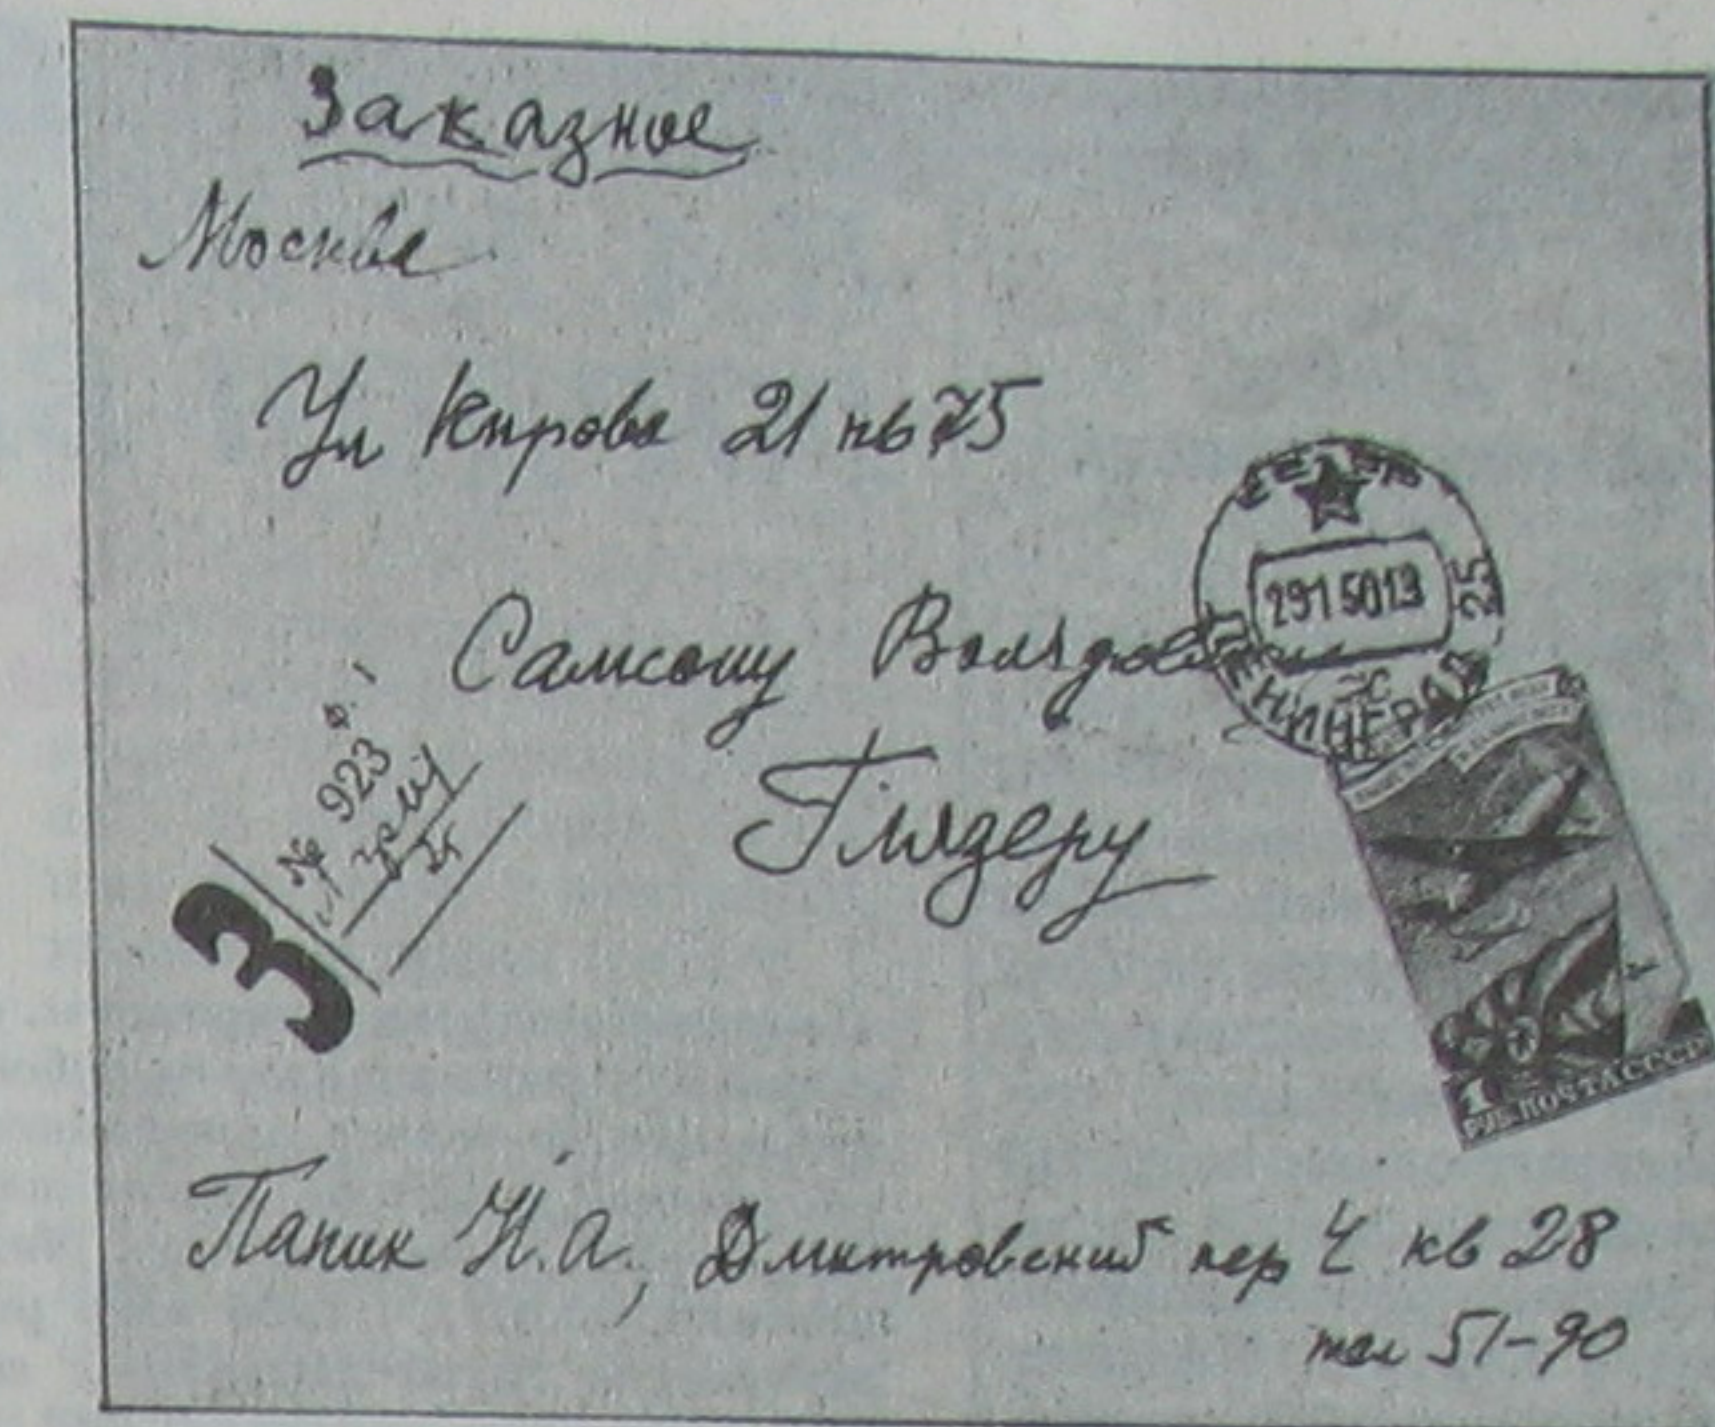 Заказное
Москва
Ул Кирова 21 кв 75
Самсону Вольфовичу
Глязеру
25
291 5013
ЛЕНИНГРАД
№ 923
З
1
РУБ. ПОЧТА СССР
Папик Н.А., Дмитровский пер 4 кв 28
тел 51-90